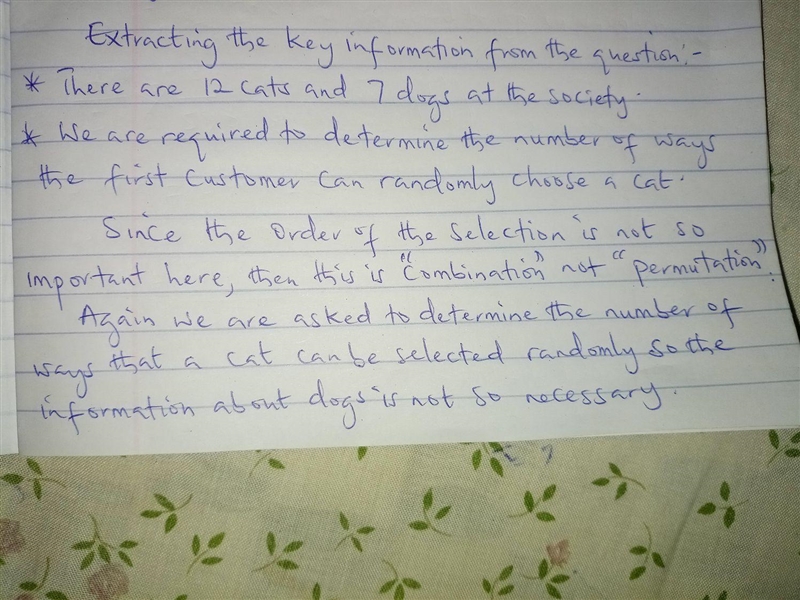 Extracting the key information from the question:-
* There are 12 cats and 7 dogs at the society.
* We are required to determine the number of ways
the first customer can randomly choose a cat.
Since the order of the selection is not so
important here, then this is "combination" not "permutation".
Again we are asked to determine the number of
ways that a cat can be selected randomly so the
information about dogs is not so necessary.